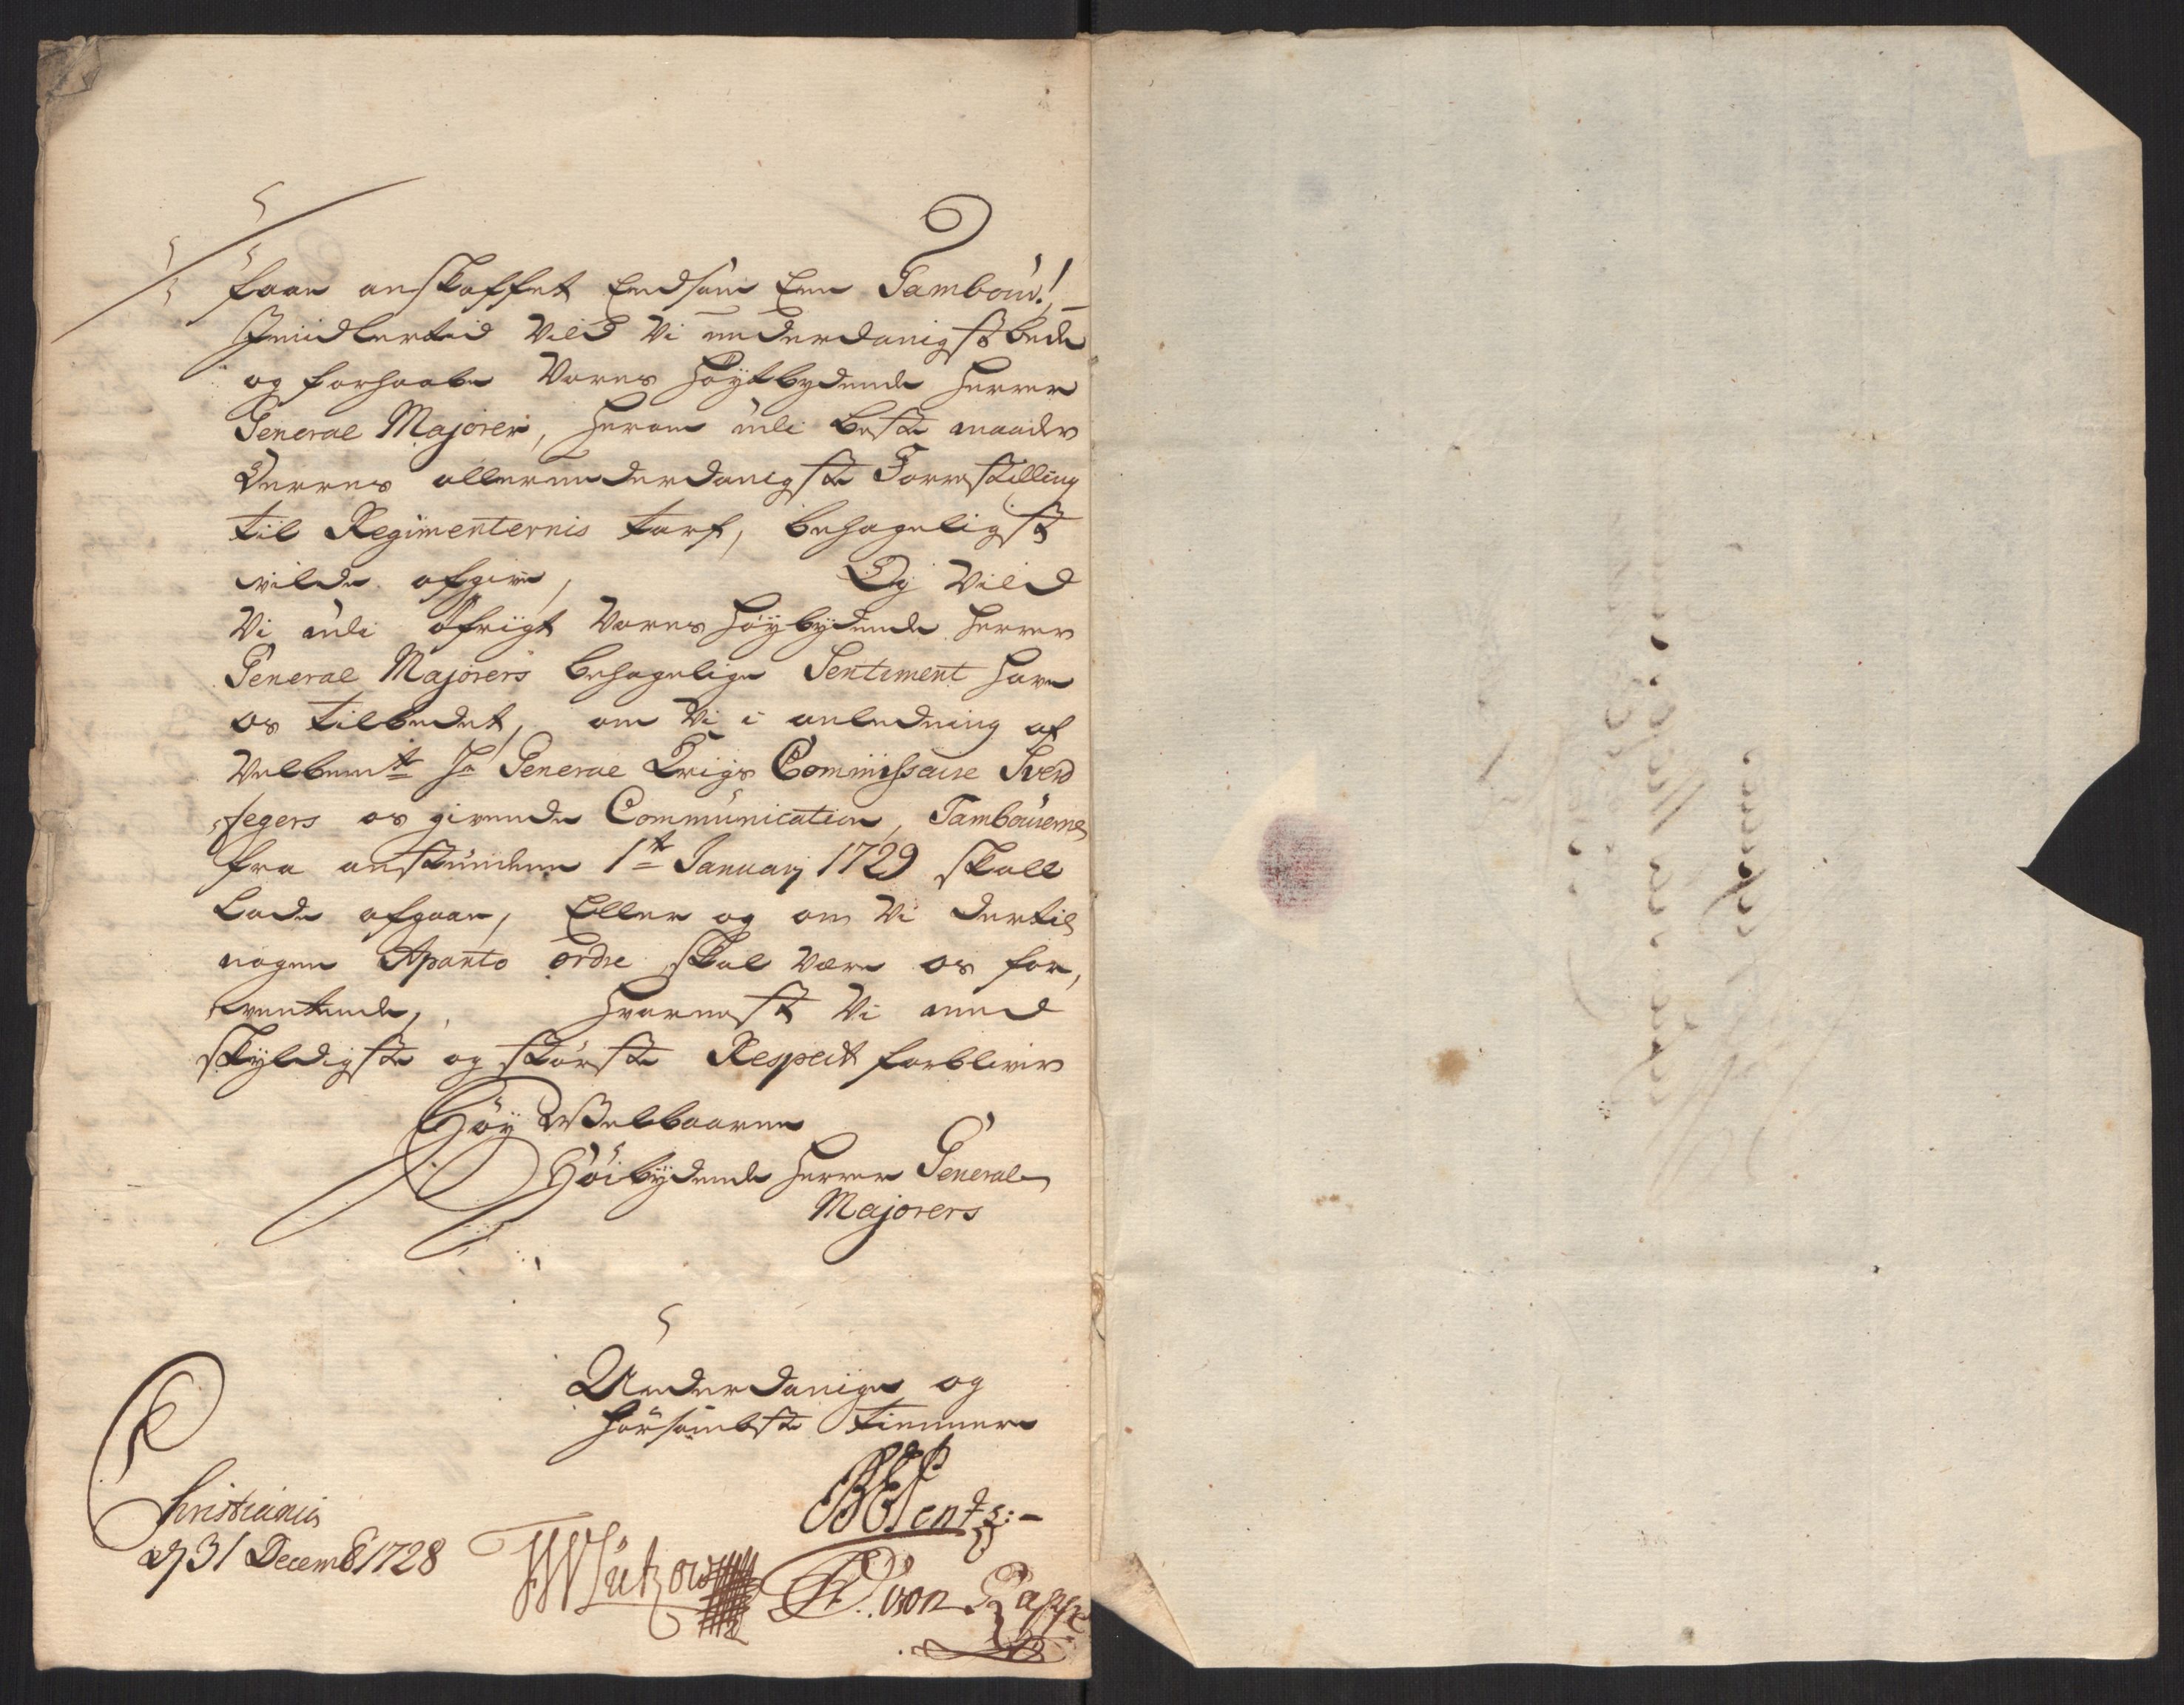 faae anskaffet Endsom Een Tambour!
Imidlertid Vild Vi underdanigst bede
og forhaabe Vores Höytbydende Herrer
General Majorer, Herom udi beste maader
Deres allerunderdanigste Forestilling
til Regimenternis tarf, behageligst
vilde afgive, Og Vild
Vi udi öfrigt Vores Höybydende Herrer
General Majorers behagelige Sentiment have
os tilbedet, om Vi i anledning af
Velbemte Hr General Krigs Commissaire Sverd
fegers os givende Communication, Tambourerne
fra anstundene 1te Januarj 1729 skall
Lade afgaae, Eller og om Vi dertil
nogen Aparite ordre skal være os for,
ventende, Hvornest Vi med
skyldigste og störste Respect forbliver
Höy Velbaarne
Höibydende Herrer General
Majorers
Underdanige og
hörsombste Tiennere
Christiania
d 31 Decemb 1728
Lützow
von Pappe